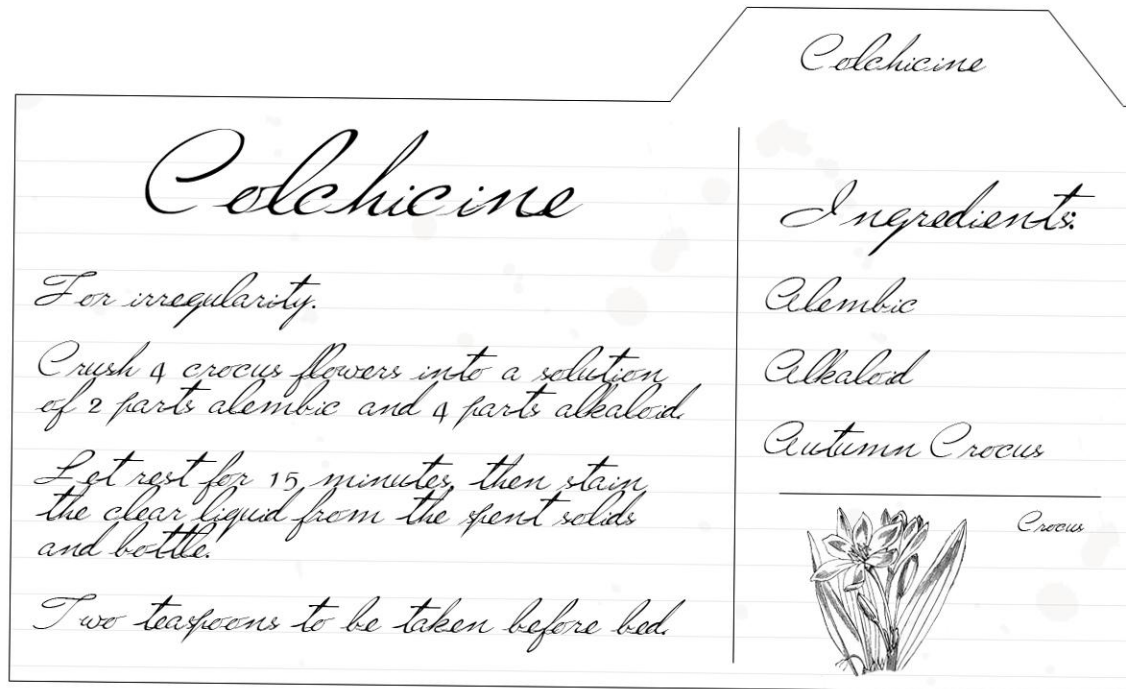 Colchicine
Colchicine
For irregularity.
Crush 4 crocus flowers into a solution
of 2 parts alembic and 4 parts alkaloid.
Let rest for 15 minutes, then stain
the clear liquid from the spent solids
and bottle.
Two teaspoons to be taken before bed.
Ingredients:
Alembic
Alkaloid
Autumn Crocus
Crocus